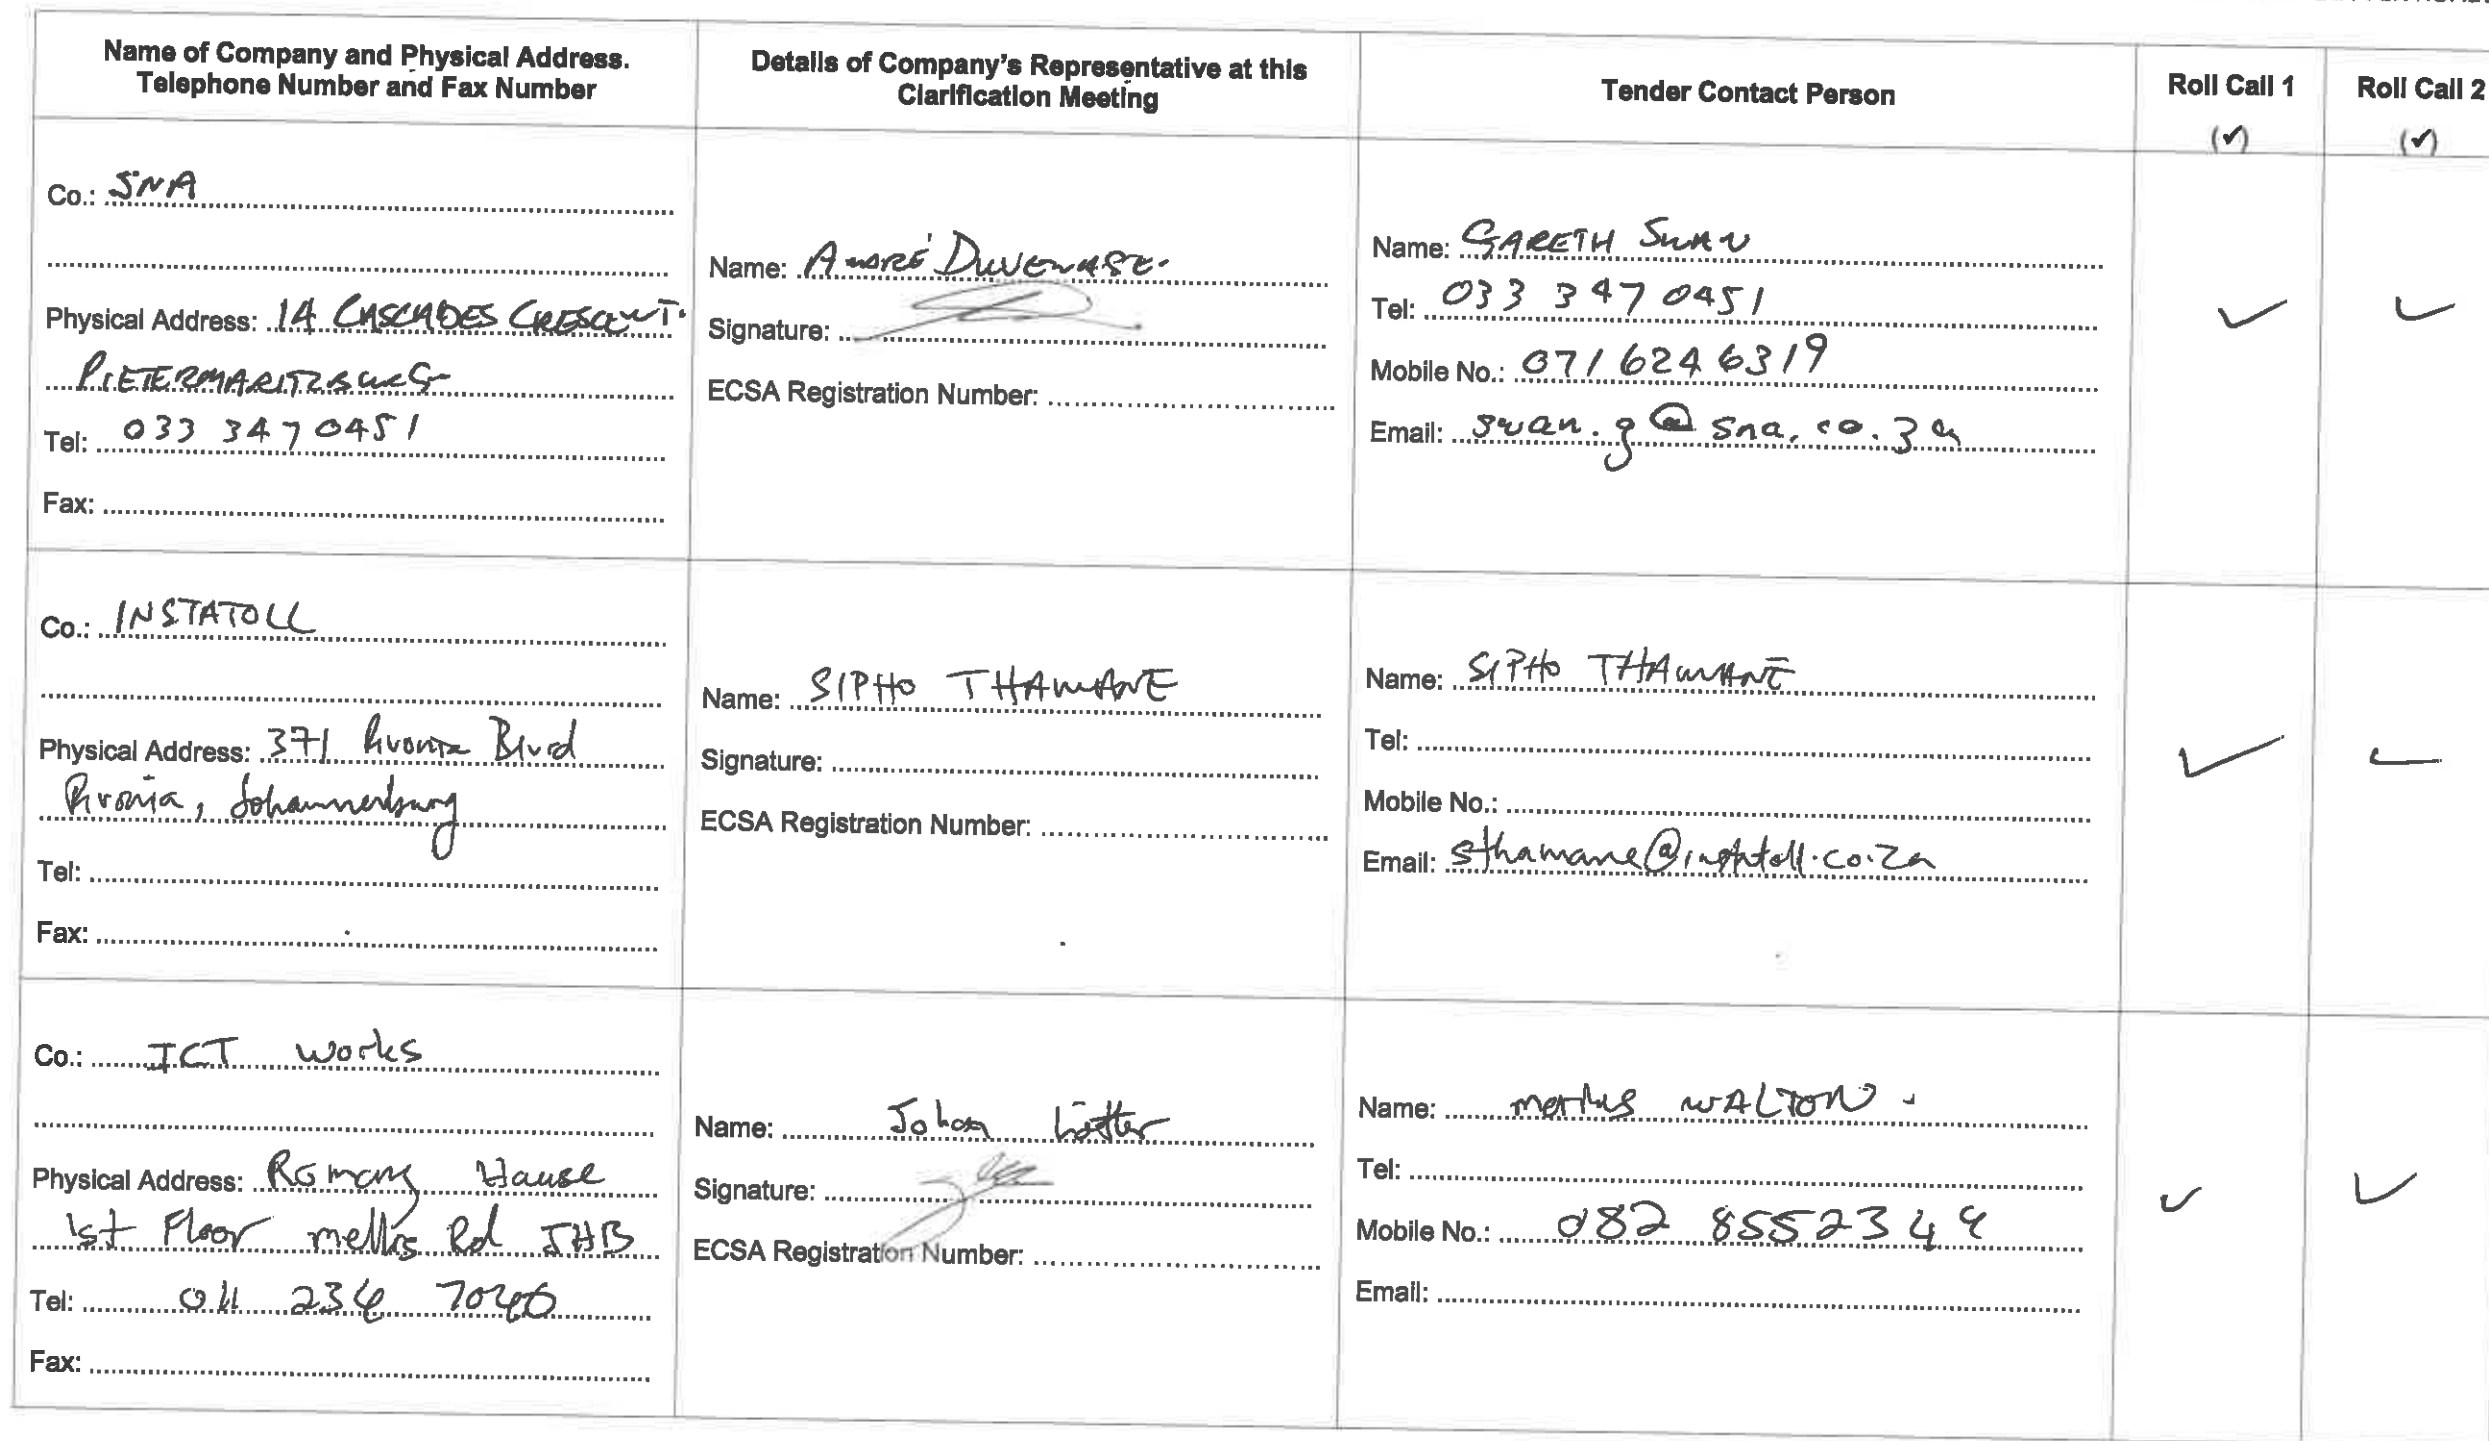 Name of Company and Physical Address.
Telephone Number and Fax Number
Details of Company's Representative at this
Clarification Meeting
Tender Contact Person
Roll Call 1
(✓)
Roll Call 2
(✓)
Co.: SNA
Physical Address: 14 CASCADES CRESCENT.
PIETERMARITZBURG
Tel: 033 347 0451
Fax:
Name: ANDRÉ DUVENAGE.
Signature:
ECSA Registration Number:
Name: GARETH SWAN
Tel: 033 347 0451
Mobile No.: 071 624 6319
Email: swan.g@sna.co.za
✓
✓
Co.: INSTATOLL
Physical Address: 371 Rivonia Blvd
Rivonia, Johannesburg
Tel:
Fax:
Name: SIPHO THAMANE
Signature:
ECSA Registration Number:
Name: SIPHO THAMANE
Tel:
Mobile No.:
Email: sthamane@instatoll.co.za
✓
✓
Co.: ICT Works
Physical Address: Romany House
1st Floor mellis Rd JHB
Tel: 011 234 7046
Fax:
Name: Johan Lötter
Signature:
ECSA Registration Number:
Name: WALTON
Tel:
Mobile No.: 082 8552344
Email:
✓
✓